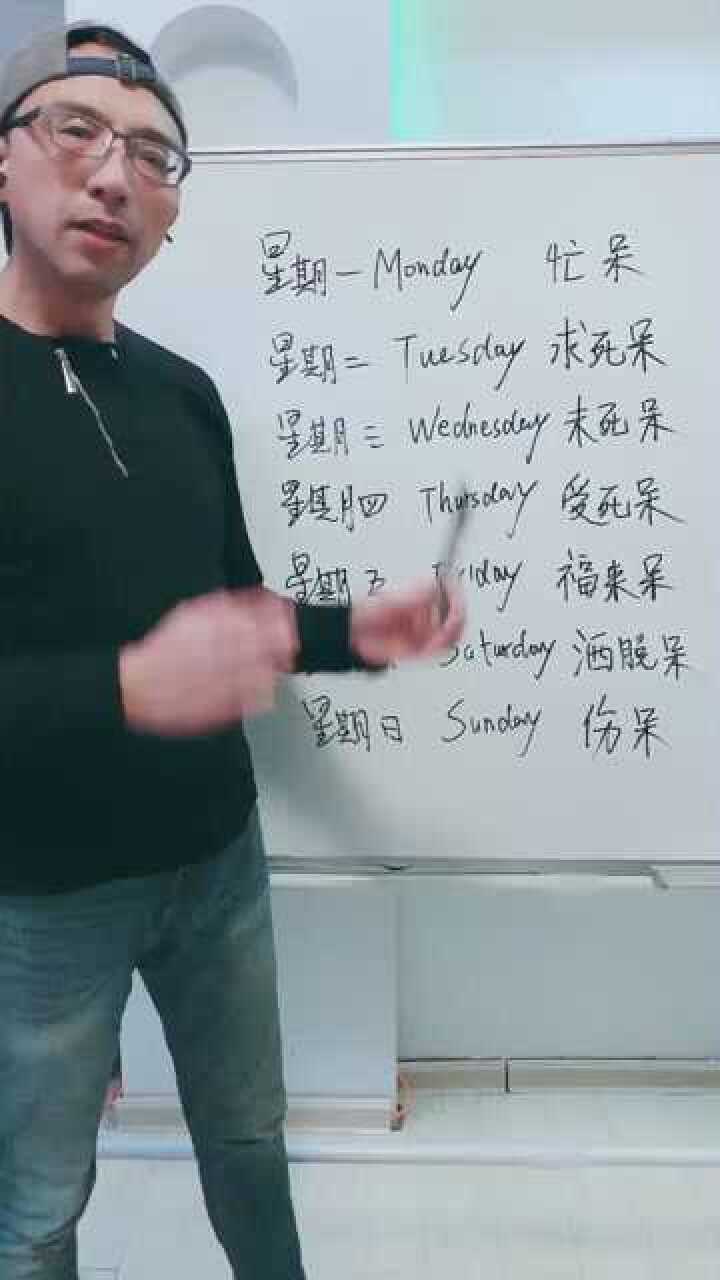 星期一 Monday 忙呆
星期二 Tuesday 求死呆
星期三 Wednesday 未死呆
星期四 Thursday 受死呆
星期五 Friday 福来呆
Saturday 洒脱呆
星期日 Sunday 伤呆